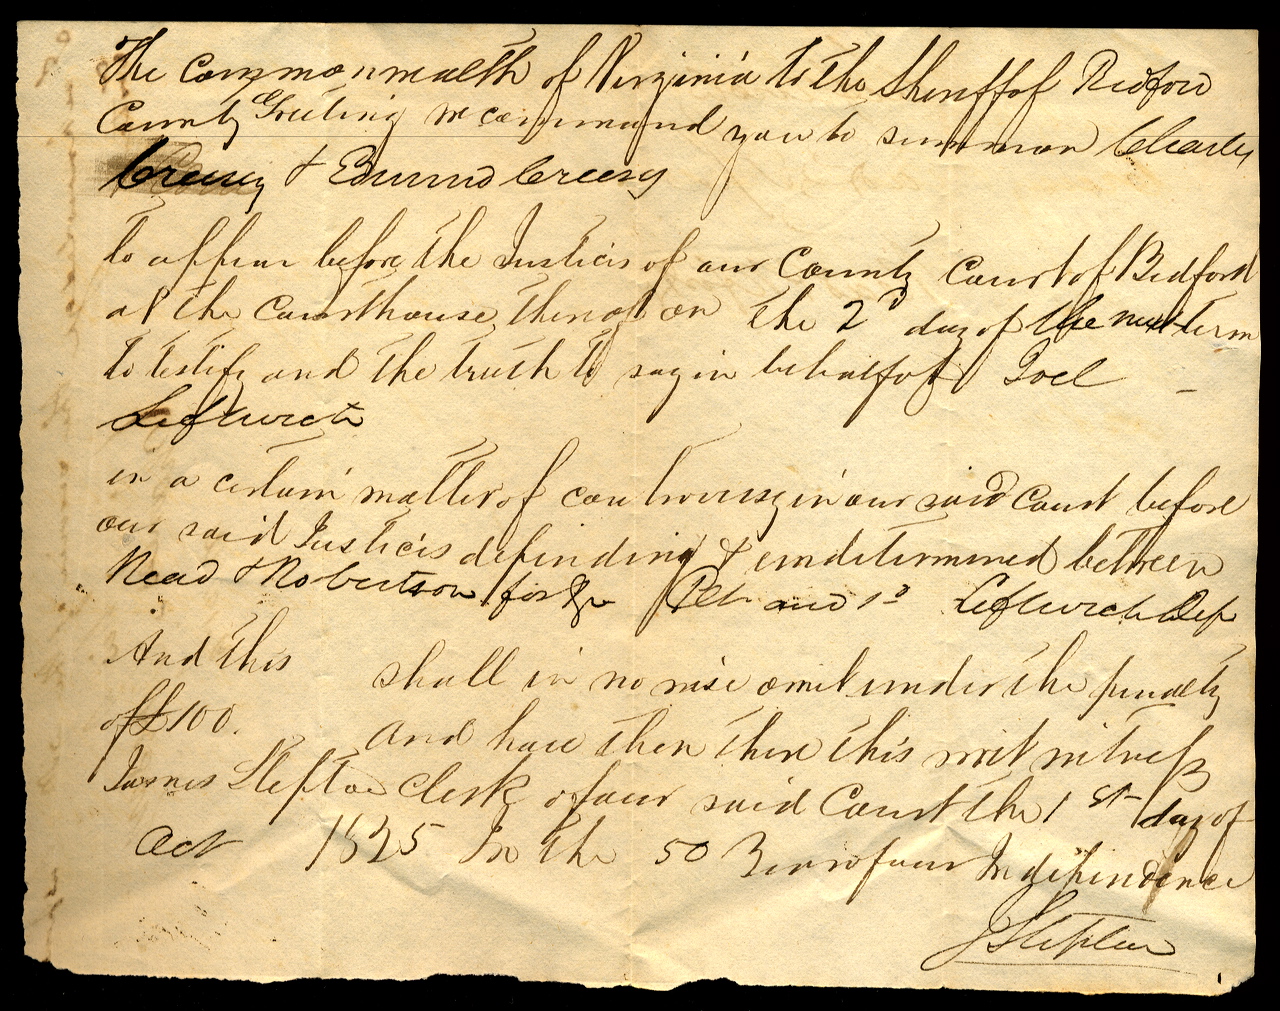 The Commonwealth of Virginia to the Sheriff of Bedford
County Greeting we command you to summon Charles
Creesy & Edmund Creesy
to appear before the Justices of our County Court of Bedford
at the Courthouse thereof on the 2d day of the next term
to testify and the truth to say in behalf of Joel
Leftwich
in a certain matter of controversy in our said Court before
our said Justices depending & undetermined between
Read & Robertson for &c Plt and sd Leftwich Def
And this shall in no wise omit under the penalty
of £100. And have then there this writ witness
James Steptoe Clerk of our said Court the 1st day of
Oct 1825 In the 50 Year of our Independence
J Steptoe